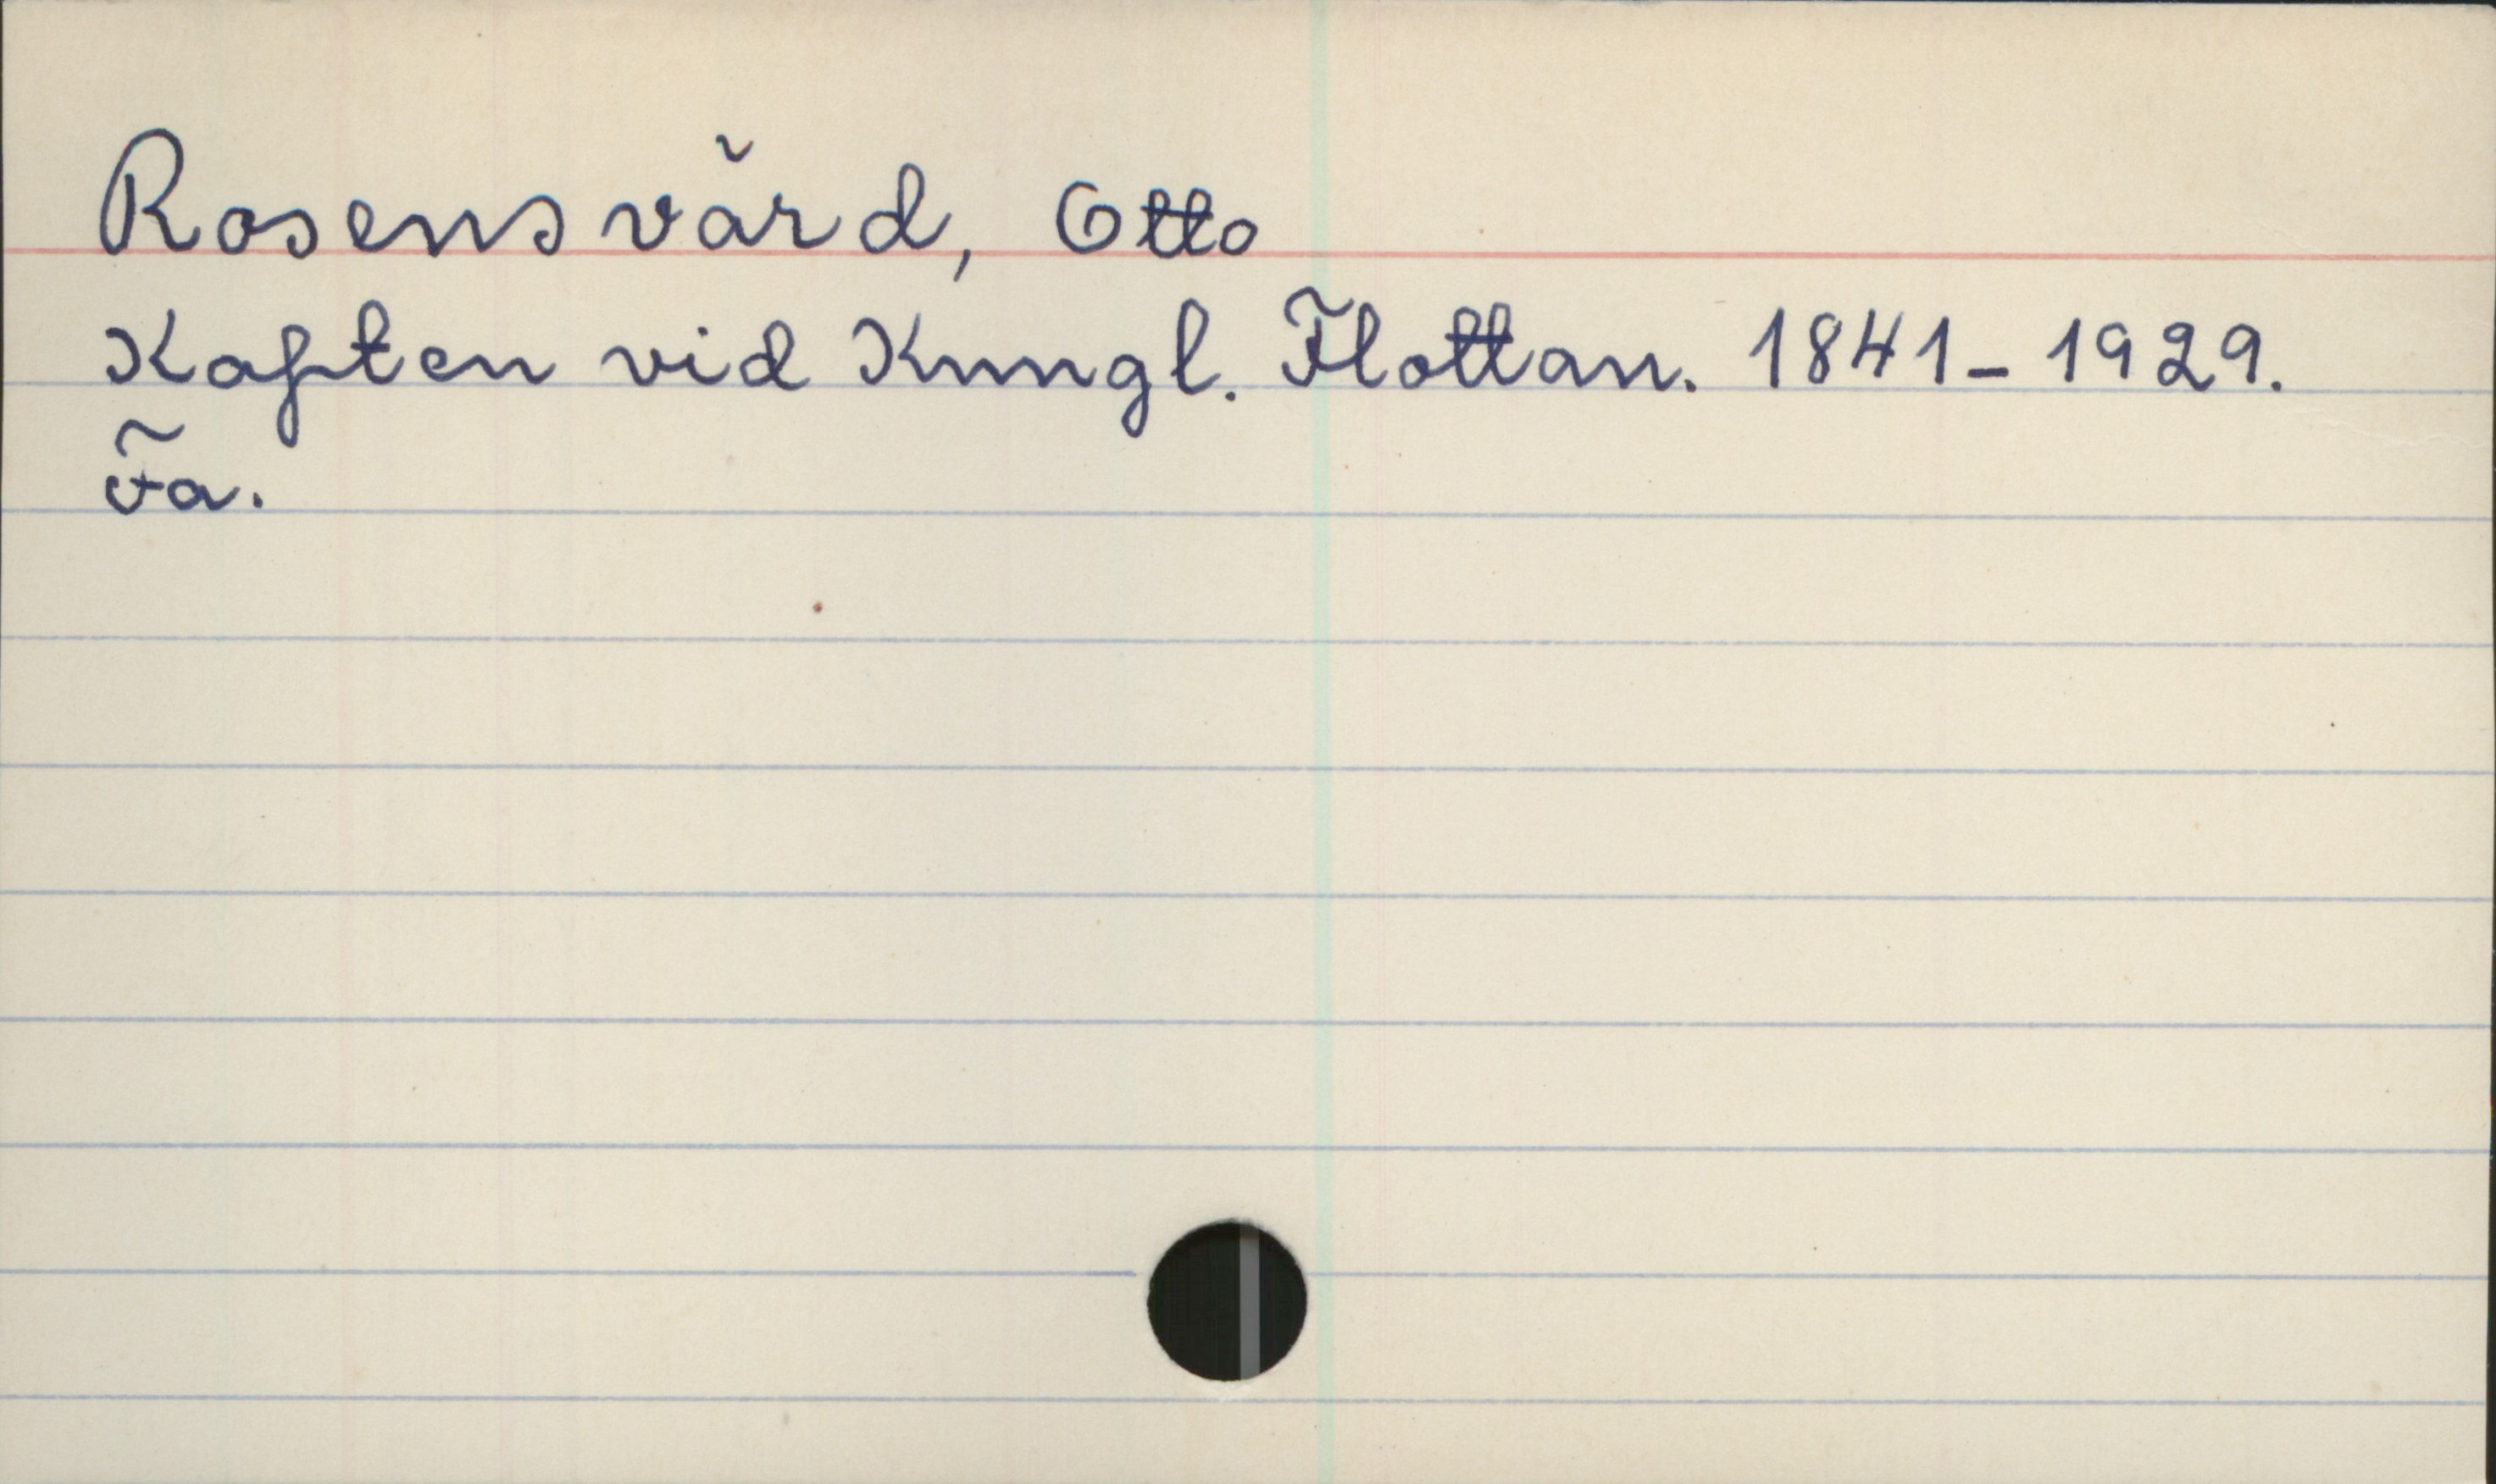 Rosensvärd, Otto
Kapten vid Kungl. Flottan. 1841-1929.
Fa.